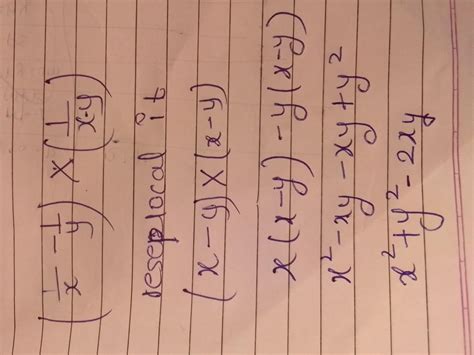 (1/x - 1/y) × (1/x-y)
reseplocal it
(x-y) × (x-y)
x(x-y) -y(x-y)
x² - xy - xy + y²
x² + y² - 2xy